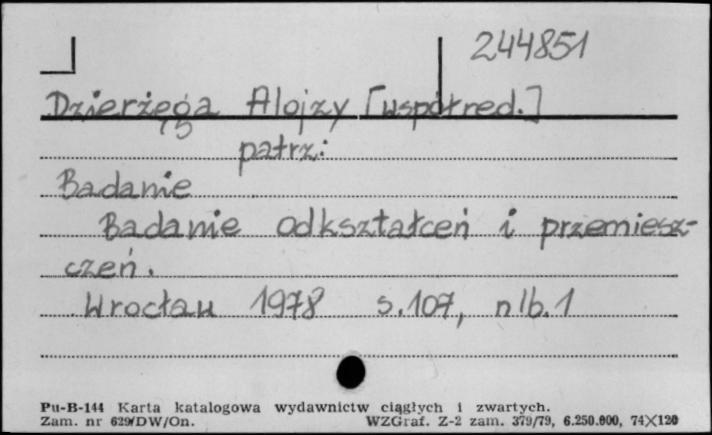 244851
Dzierżęga Alojzy [współred.]
patrz:
Badanie
Badanie odkształceń i przemiesz-
czeń.
Wrocław 1978 s.107, nlb.1
Pu-B-144 Karta katalogowa wydawnictw ciągłych i zwartych.
Zam. nr 629/DW/On. WZGraf. Z-2 zam. 379/79, 6.250.000, 74X120